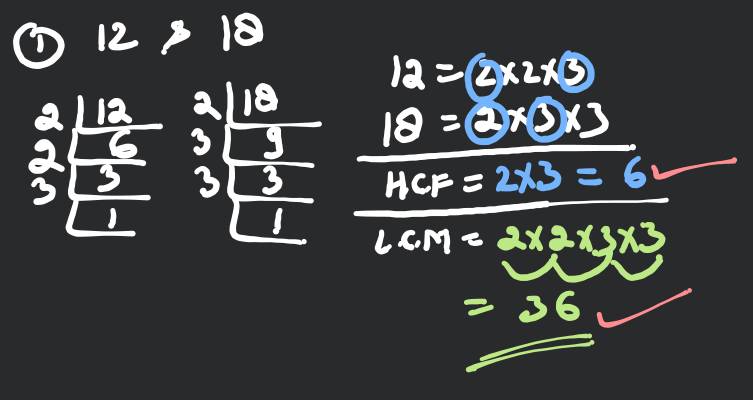 ① 12 & 18
2 | 12
2 | 6
3 | 3
1
2 | 18
3 | 9
3 | 3
1
12 = 2×2×3
18 = 2×3×3
HCF = 2×3 = 6
L.C.M = 2×2×3×3
= 36